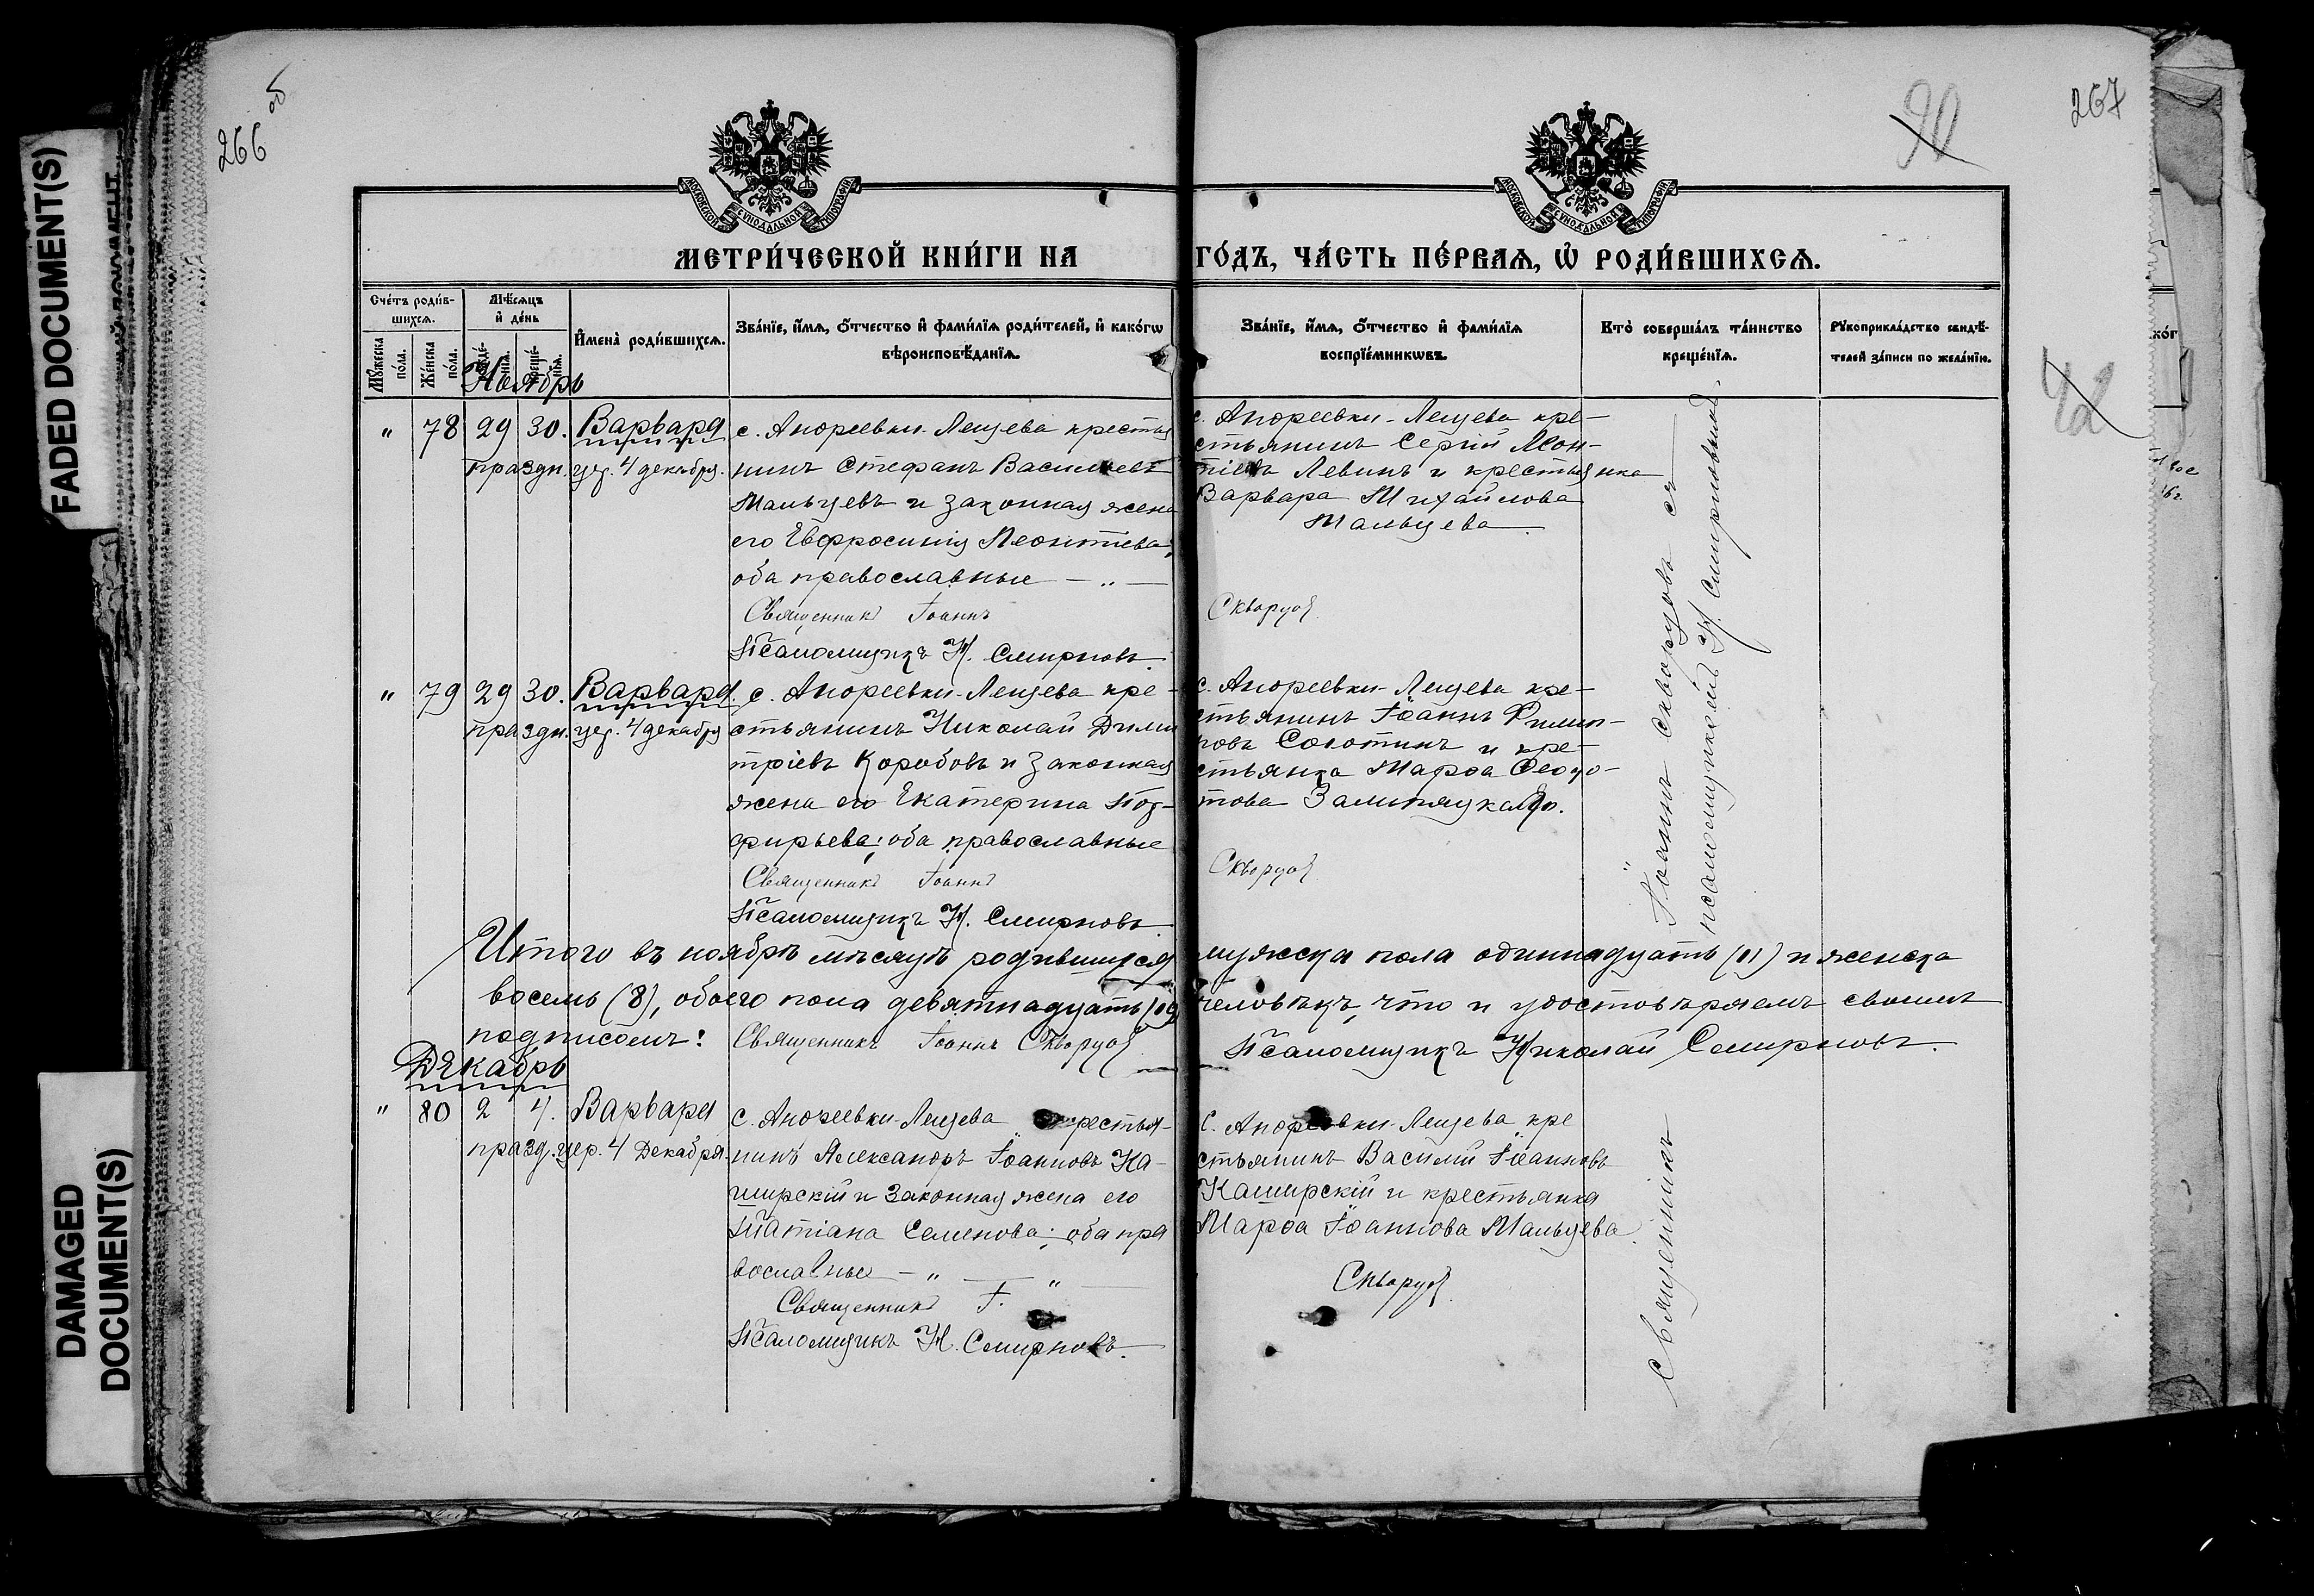 FADED DOCUMENT(S)
DAMAGED
DOCUMENT(S)
266 об
90
267
МОСКОВСКОЙ СѴНОДАЛЬНОЙ ТИПОГРАФІИ
МОСКОВСКОЙ СѴНОДАЛЬНОЙ ТИПОГРАФІИ
МЕТРИ́ЧЕСКОЙ КНИ́ГИ НА
ГО́ДЪ, ЧА́СТЬ ПЕ́РВАЯ, Ѡ҆ РОДИ́ВШИХСѦ.
Сче́тъ роди́в-
шихсѧ.
Мꙋ́жеска
по́ла.
Же́нска
по́ла.
Мѣ́сѧцъ
и҆ де́нь
Имена̀ роди́вшихсѧ.
Зва́нїе, и҆́мѧ, ѻ҆́тчество и҆ фами́лїѧ роди́телей, и҆ како́гѡ
вѣроисповѣ́данїѧ.
Зва́нїе, и҆́мѧ, ѻ҆́тчество и҆ фами́лїѧ
воспрїе́мникѡвъ.
Кто̀ соверша́лъ та́инство
креще́нїѧ.
Рꙋкоприкла́дство свидѣ́-
телей за́писи по жела́нїю.
Ноябрь
" 78 29 30. Варвара
праздн. цер. 4 декабря.
с. Андреевки-Лещева крестья
нинъ Стефанъ Васильевъ
Мальцевъ и законная жена
его Евфросинія Леонтіева;
оба православные — „ —
Священникъ Іоаннъ
Псаломщикъ Н. Смирновъ.
с. Андреевки-Лещева кре-
стьянинъ Сергій Леон-
тіевъ Левинъ и крестьянка
Варвара Михайлова
Мальцева
Скворцов
" 79 29 30. Варвара.
праздн. цер. 4 декабря
с. Андреевки-Лещева кре-
стьянинъ Николай Дими
тріевъ Коробовъ и законная
жена его Екатерина Пор-
фирьева; оба православные
Священникъ Іоаннъ
Псаломщикъ Н. Смирновъ.
с. Андреевки-Лещева кре-
стьянинъ Іоаннъ Филип-
повъ Солотинъ и кре-
стьянка Марѳа Ѳедо-
това
Скворцов
Священникъ Іоаннъ Скворцовъ съ
псаломщикомъ Н. Смирновымъ
Итого въ ноябрѣ мѣсяцѣ родившихся мужска пола одиннадцать (11) и женска
восемь (8), обоего пола девятнадцать (19) человѣкъ, что и удостовѣряемъ своимъ
подписомъ: Священникъ Іоаннъ Скворцов Псаломщикъ Николай Смирновъ.
Декабрь
" 80 2 4. Варвара
празд. цер. 4 Декабря.
с. Андреевки-Лещева крестья-
нинъ Александръ Іоанновъ Ка-
ширскій и законная жена его
Татіана Семенова; оба пра
вославные — „ — „ —
Священникъ І.
Псаломщикъ Н. Смирновъ.
с. Андреевки-Лещева кре
стьянинъ Василій Іоанновъ
Каширскій и крестьянка
Марѳа Іоаннова Мальцева.
Скворцов